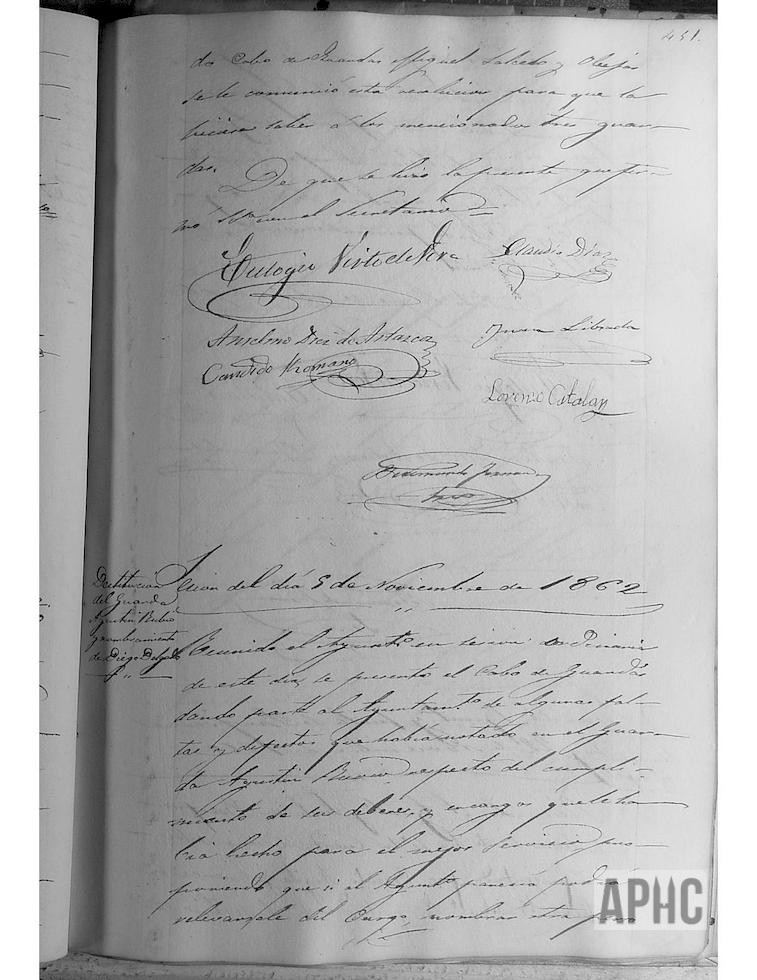 451.
do Cabo de Guardas Miguel Salcedo y Obejas
se le comunicó esta resolucion para que la
hiciera saber á los mencionados tres guar
das.
De que se hizo la presente que fir
mó S.S. con el Secretario =
Eulogio Virto de Vera
Claudio Diaz
Anselmo Diez de Artazcoz
Juan Librada
Candido Romano
Lorenzo Catalan
Destitucion
del Guarda
Agustin Rubio
y nombramiento
de Diego Delgado
Sesion del dia 5 de Noviembre de 1862
Reunido el Ayuntto en sesion ordinaria
de este dia, se presentó el Cabo de Guardas
dando parte al Ayuntamto de algunas fal-
tas y defectos que habia notado en el Guar-
da Agustin Rubio respecto del cumpli-
miento de sus deberes, y encargos que le ha-
bia hecho para el mejor servicio pro-
poniendo que si al Ayuntto parecia podria
relevarsele del Cargo, nombrar otro para
APHC